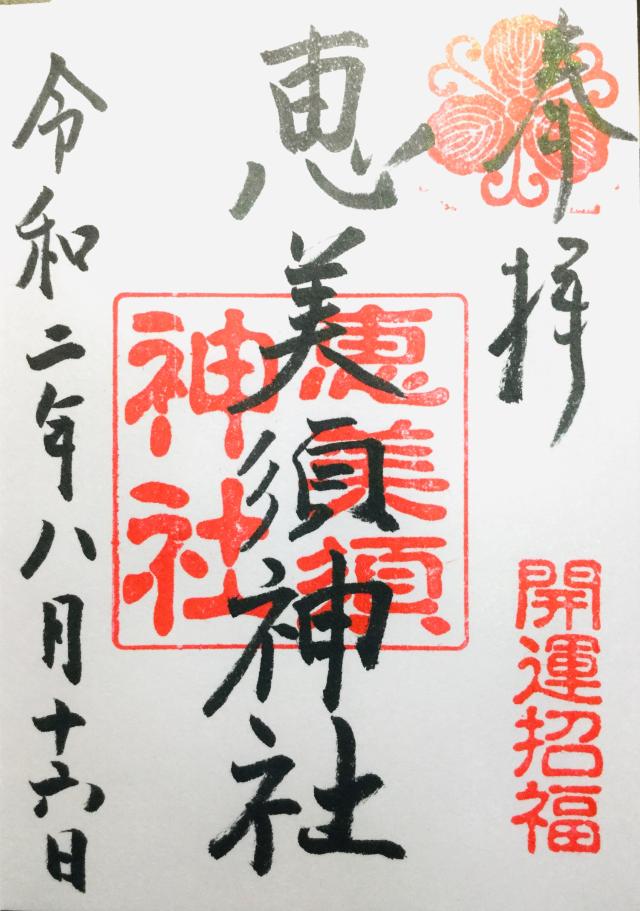 奉拝
開運招福
恵美須神社
恵美須
神社
令和二年八月十六日